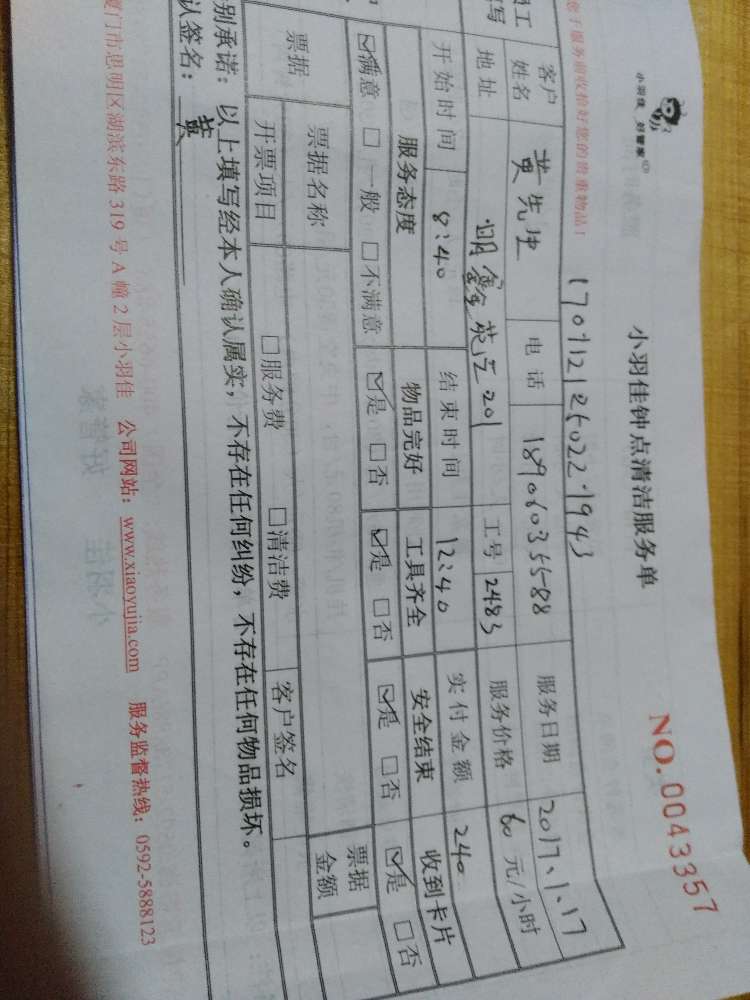 小羽佳 好管家
小羽佳钟点清洁服务单
NO.0043357
您于服务前收拾好您的贵重物品！
客户姓名 黄先生 电话 18906035588 服务日期 2017.1.17
地址 201 工号 2483 服务价格 60 元/小时
开始时间 8:40 结束时间 12:40 实付金额 240
服务态度 物品完好 工具齐全 安全结束 收到卡片
☑满意 □一般 □不满意 ☑是 □否 ☑是 □否 ☑是 □否 ☑是 □否
票据 票据名称 票据金额
开票项目 □服务费 □清洁费 客户签名
别承诺：以上填写经本人确认属实，不存在任何纠纷，不存在任何物品损坏。
认签名：黄
厦门市思明区湖滨东路 319 号 A 幢 2 层小羽佳 公司网站：www.xiaoyujia.com 服务监督热线：0592-5888123